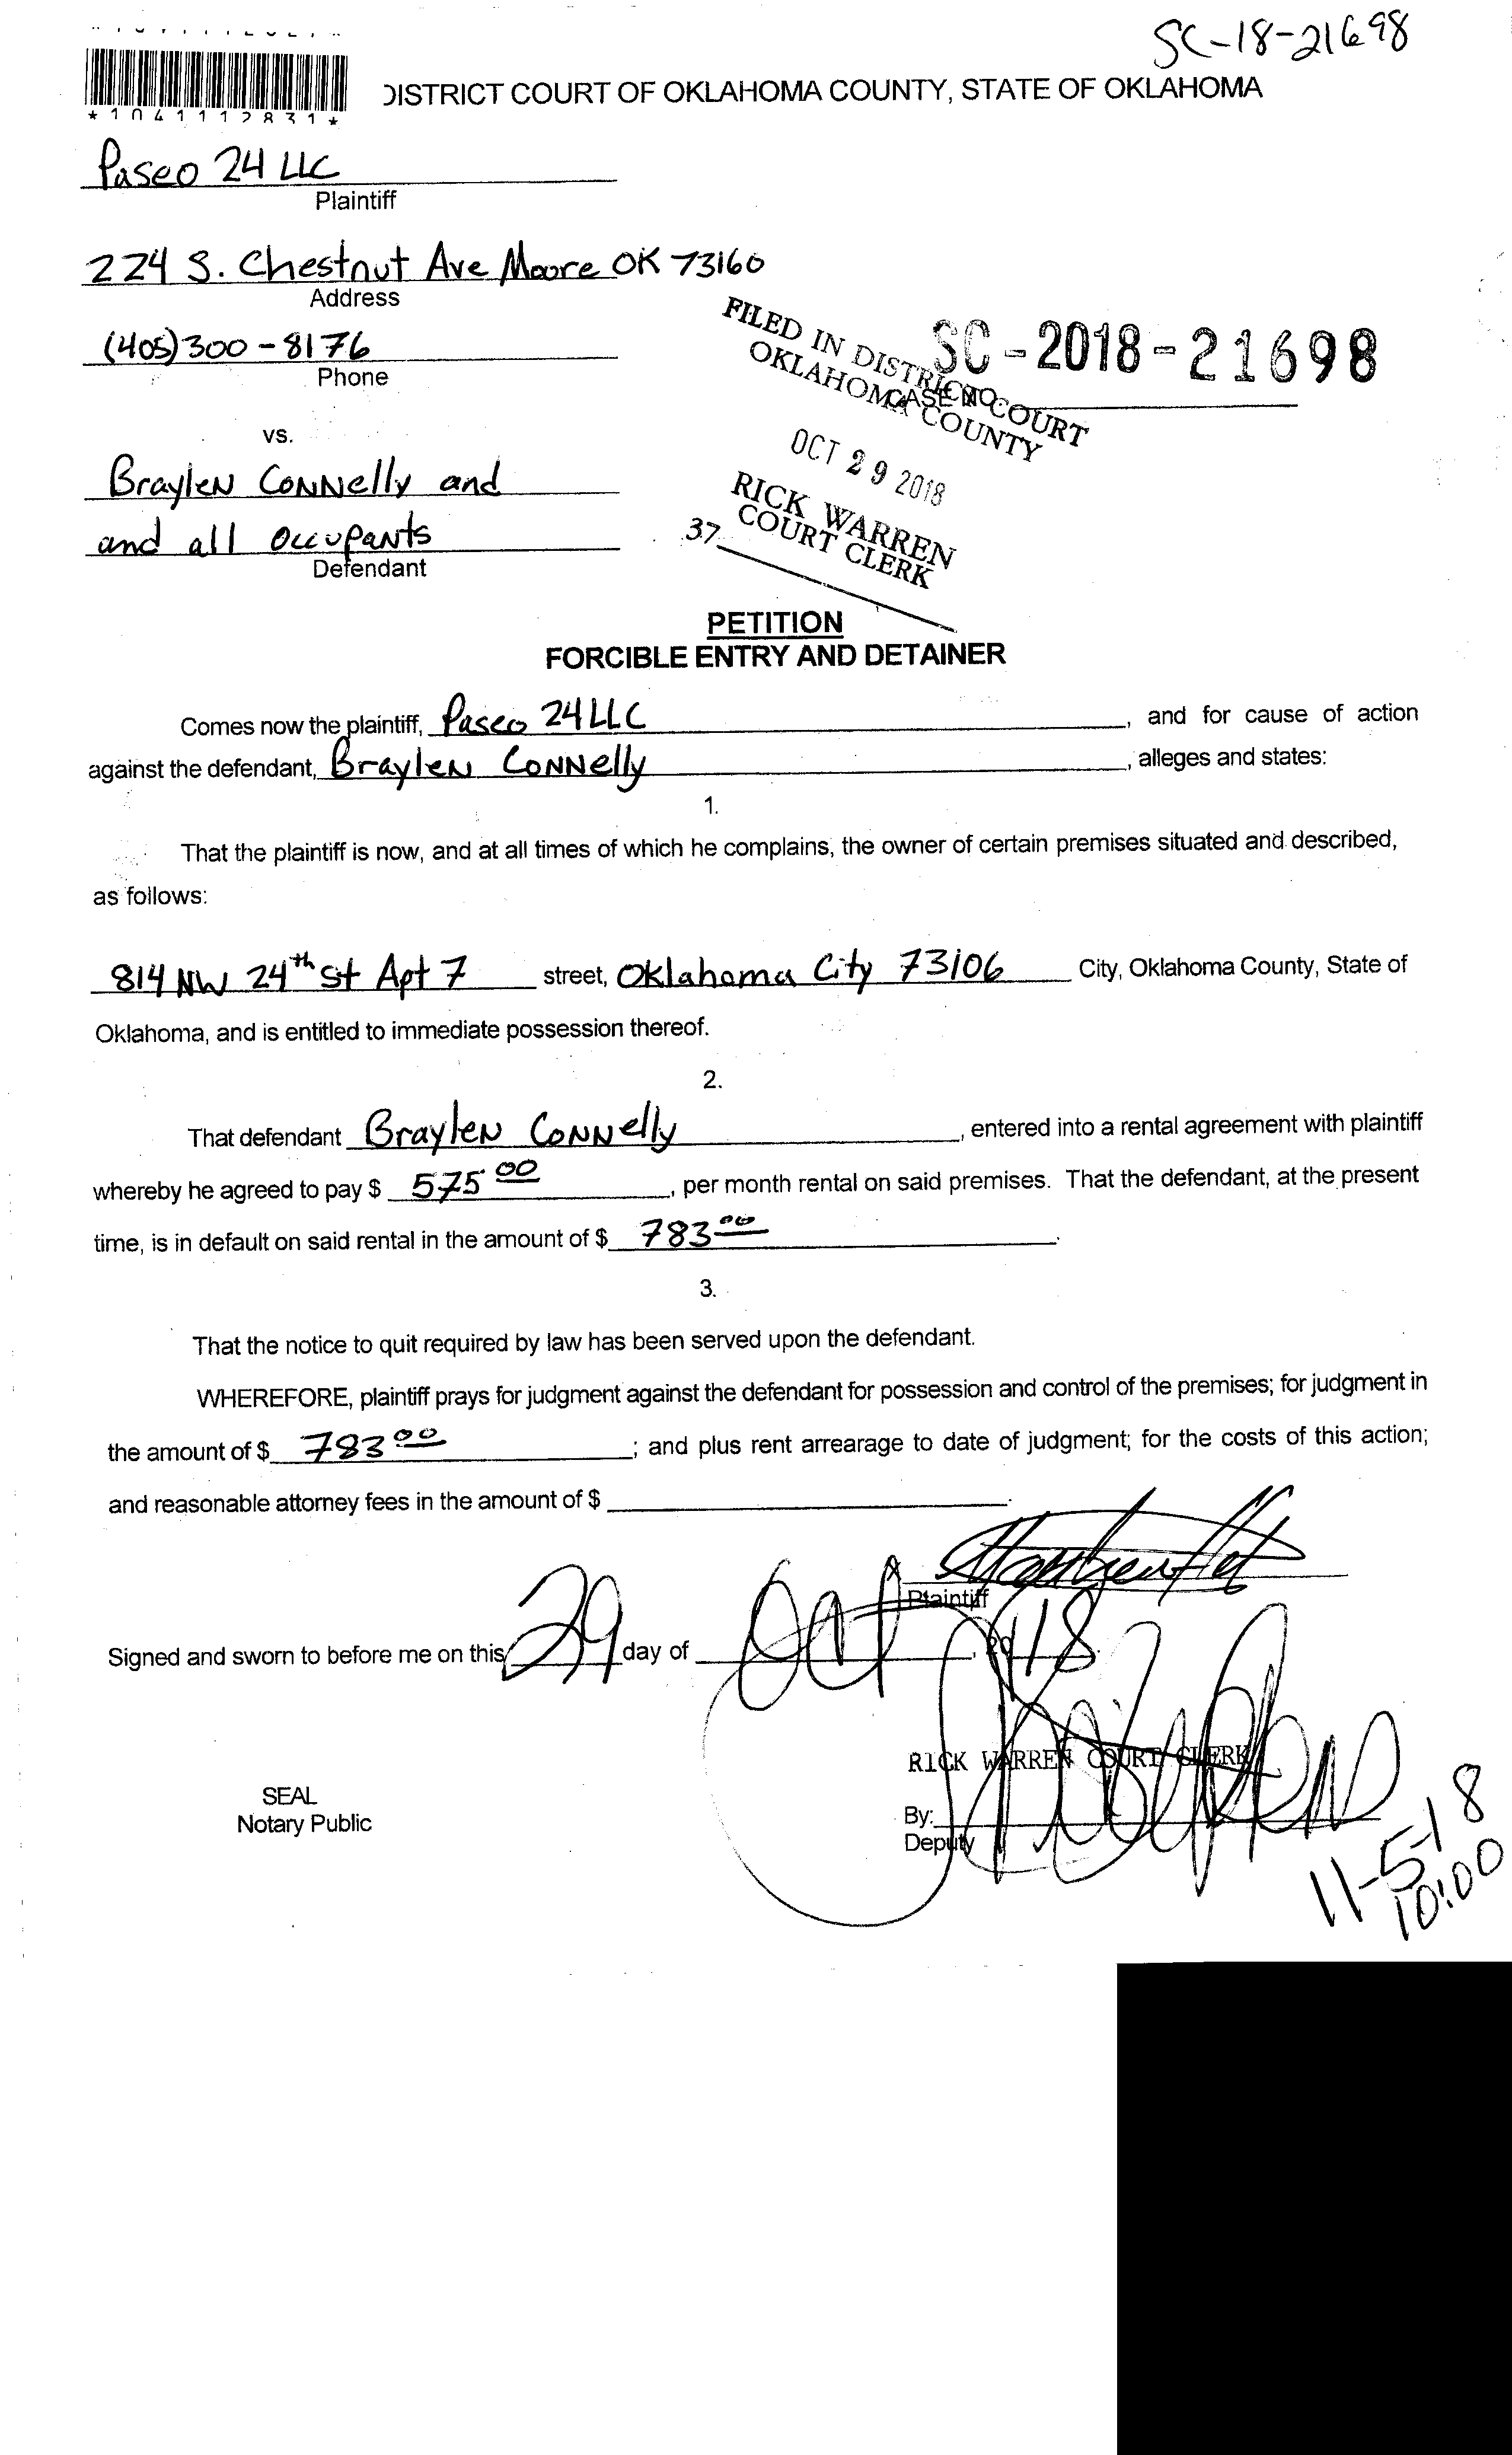 SC-18-21698
*1041112831*
DISTRICT COURT OF OKLAHOMA COUNTY, STATE OF OKLAHOMA
Paseo 24 LLC
Plaintiff
224 S. Chestnut Ave Moore OK 73160
Address
(405)300-8176
Phone
FILED IN DISTRICT COURT
OKLAHOMA COUNTY
SC-2018-21698
CASE NO.
OCT 29 2018
RICK WARREN
COURT CLERK
37
vs.
Braylen Connelly and
and all Occupants
Defendant
PETITION
FORCIBLE ENTRY AND DETAINER
Comes now the plaintiff, Paseo 24 LLC, and for cause of action
against the defendant, Braylen Connelly, alleges and states:
1.
That the plaintiff is now, and at all times of which he complains, the owner of certain premises situated and described,
as follows:
814 NW 24th St Apt 7 street, Oklahoma City 73106 City, Oklahoma County, State of
Oklahoma, and is entitled to immediate possession thereof.
2.
That defendant Braylen Connelly, entered into a rental agreement with plaintiff
whereby he agreed to pay $ 575 00, per month rental on said premises. That the defendant, at the present
time, is in default on said rental in the amount of $ 783 00.
3.
That the notice to quit required by law has been served upon the defendant.
WHEREFORE, plaintiff prays for judgment against the defendant for possession and control of the premises; for judgment in
the amount of $ 783 00; and plus rent arrearage to date of judgment; for the costs of this action;
and reasonable attorney fees in the amount of $
x
Plaintiff
Signed and sworn to before me on this 29 day of Oct, 2018.
RICK WARREN COURT CLERK
SEAL
Notary Public
By:
Deputy
11-5-18
10:00